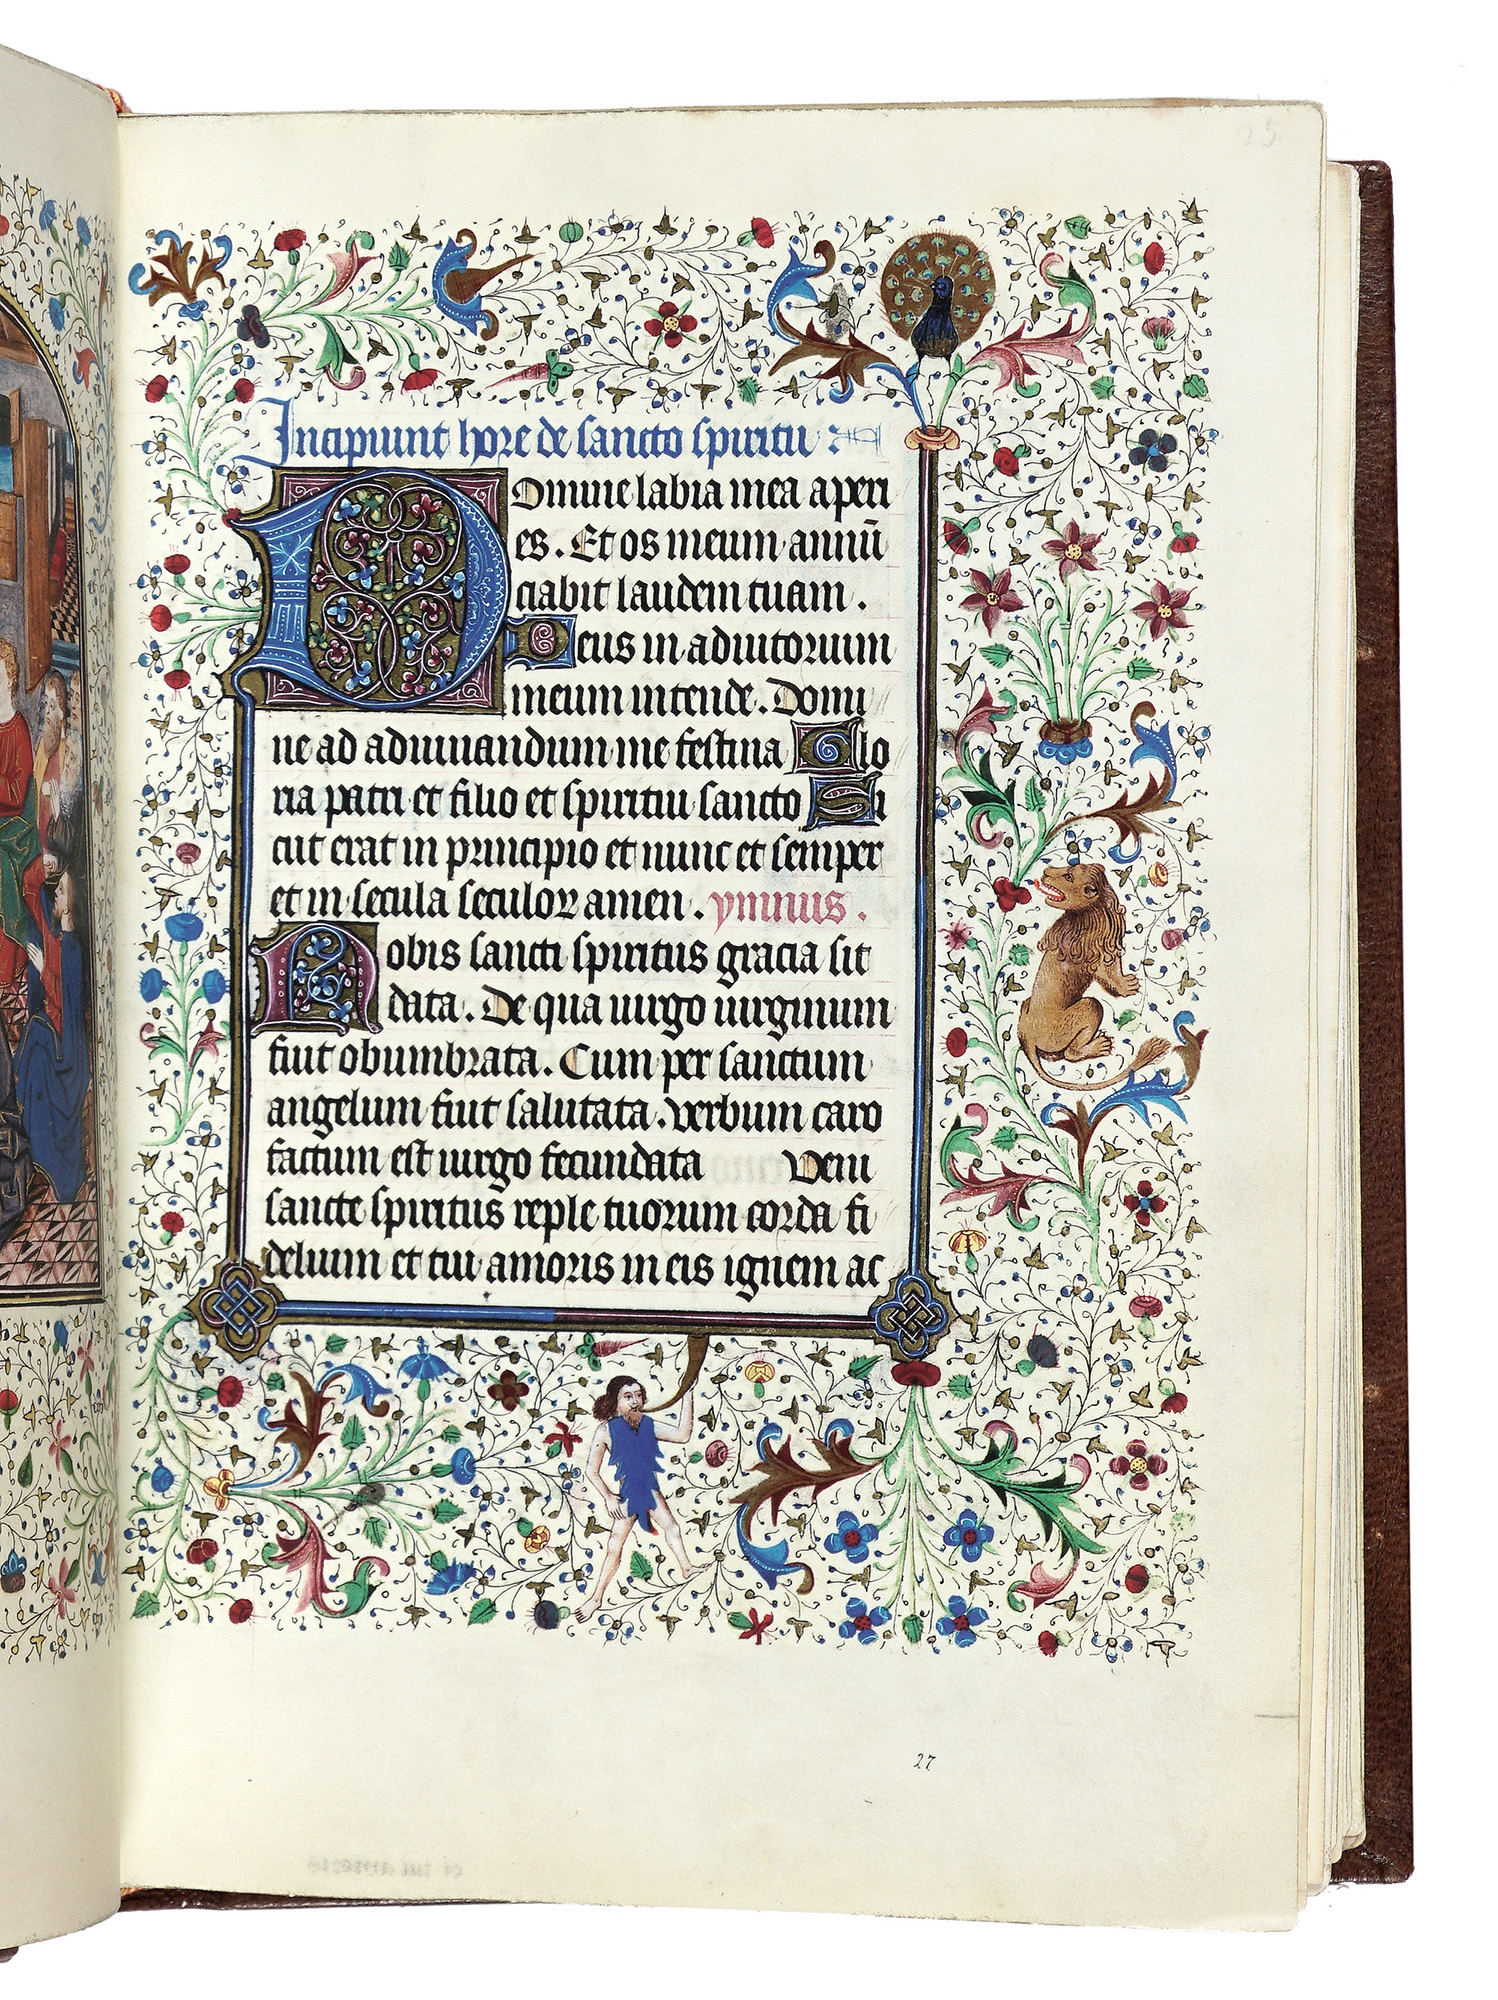 25
Incipiunt hore de sancto spiritu
Domine labia mea aperi
es. Et os meum annũ
ciabit laudem tuam.
Deus in adiutorium
meum intende. Domi
ne ad adiuuandum me festina Glo
ria patri et filio et spiritui sancto Si
cut erat in principio et nunc et semper
et in secula seculoꝝ amen. ymnus.
Nobis sancti spiritus gracia sit
data. De qua uirgo uirginum
fuit obumbrata. Cum per sanctum
angelum fuit salutata. verbum caro
factum est uirgo fecundata Veni
sancte spiritus reple tuorum corda fi
delium et tui amoris in eis ignem ac
27